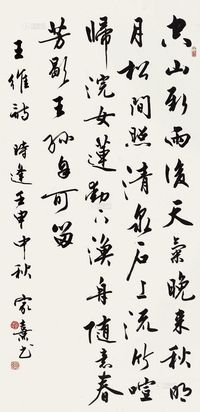 空山新雨後天氣晚来秋明
月松間照清泉石上流竹喧
歸浣女蓮動下漁舟隨意春
芳歇王孫自可留
王維詩 時逢壬申中秋 家书